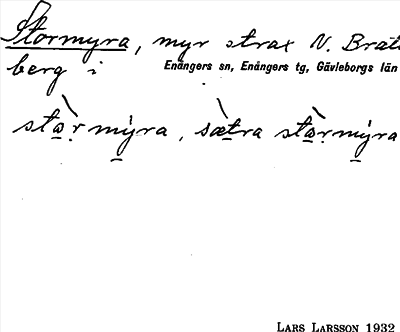 Stormyra, myr strax N. Brät-
berg i Enångers sn, Enångers tg, Gävleborgs län
stɑ̀r mýra, sætra stɑ̀r mýra
LARS LARSSON 1932